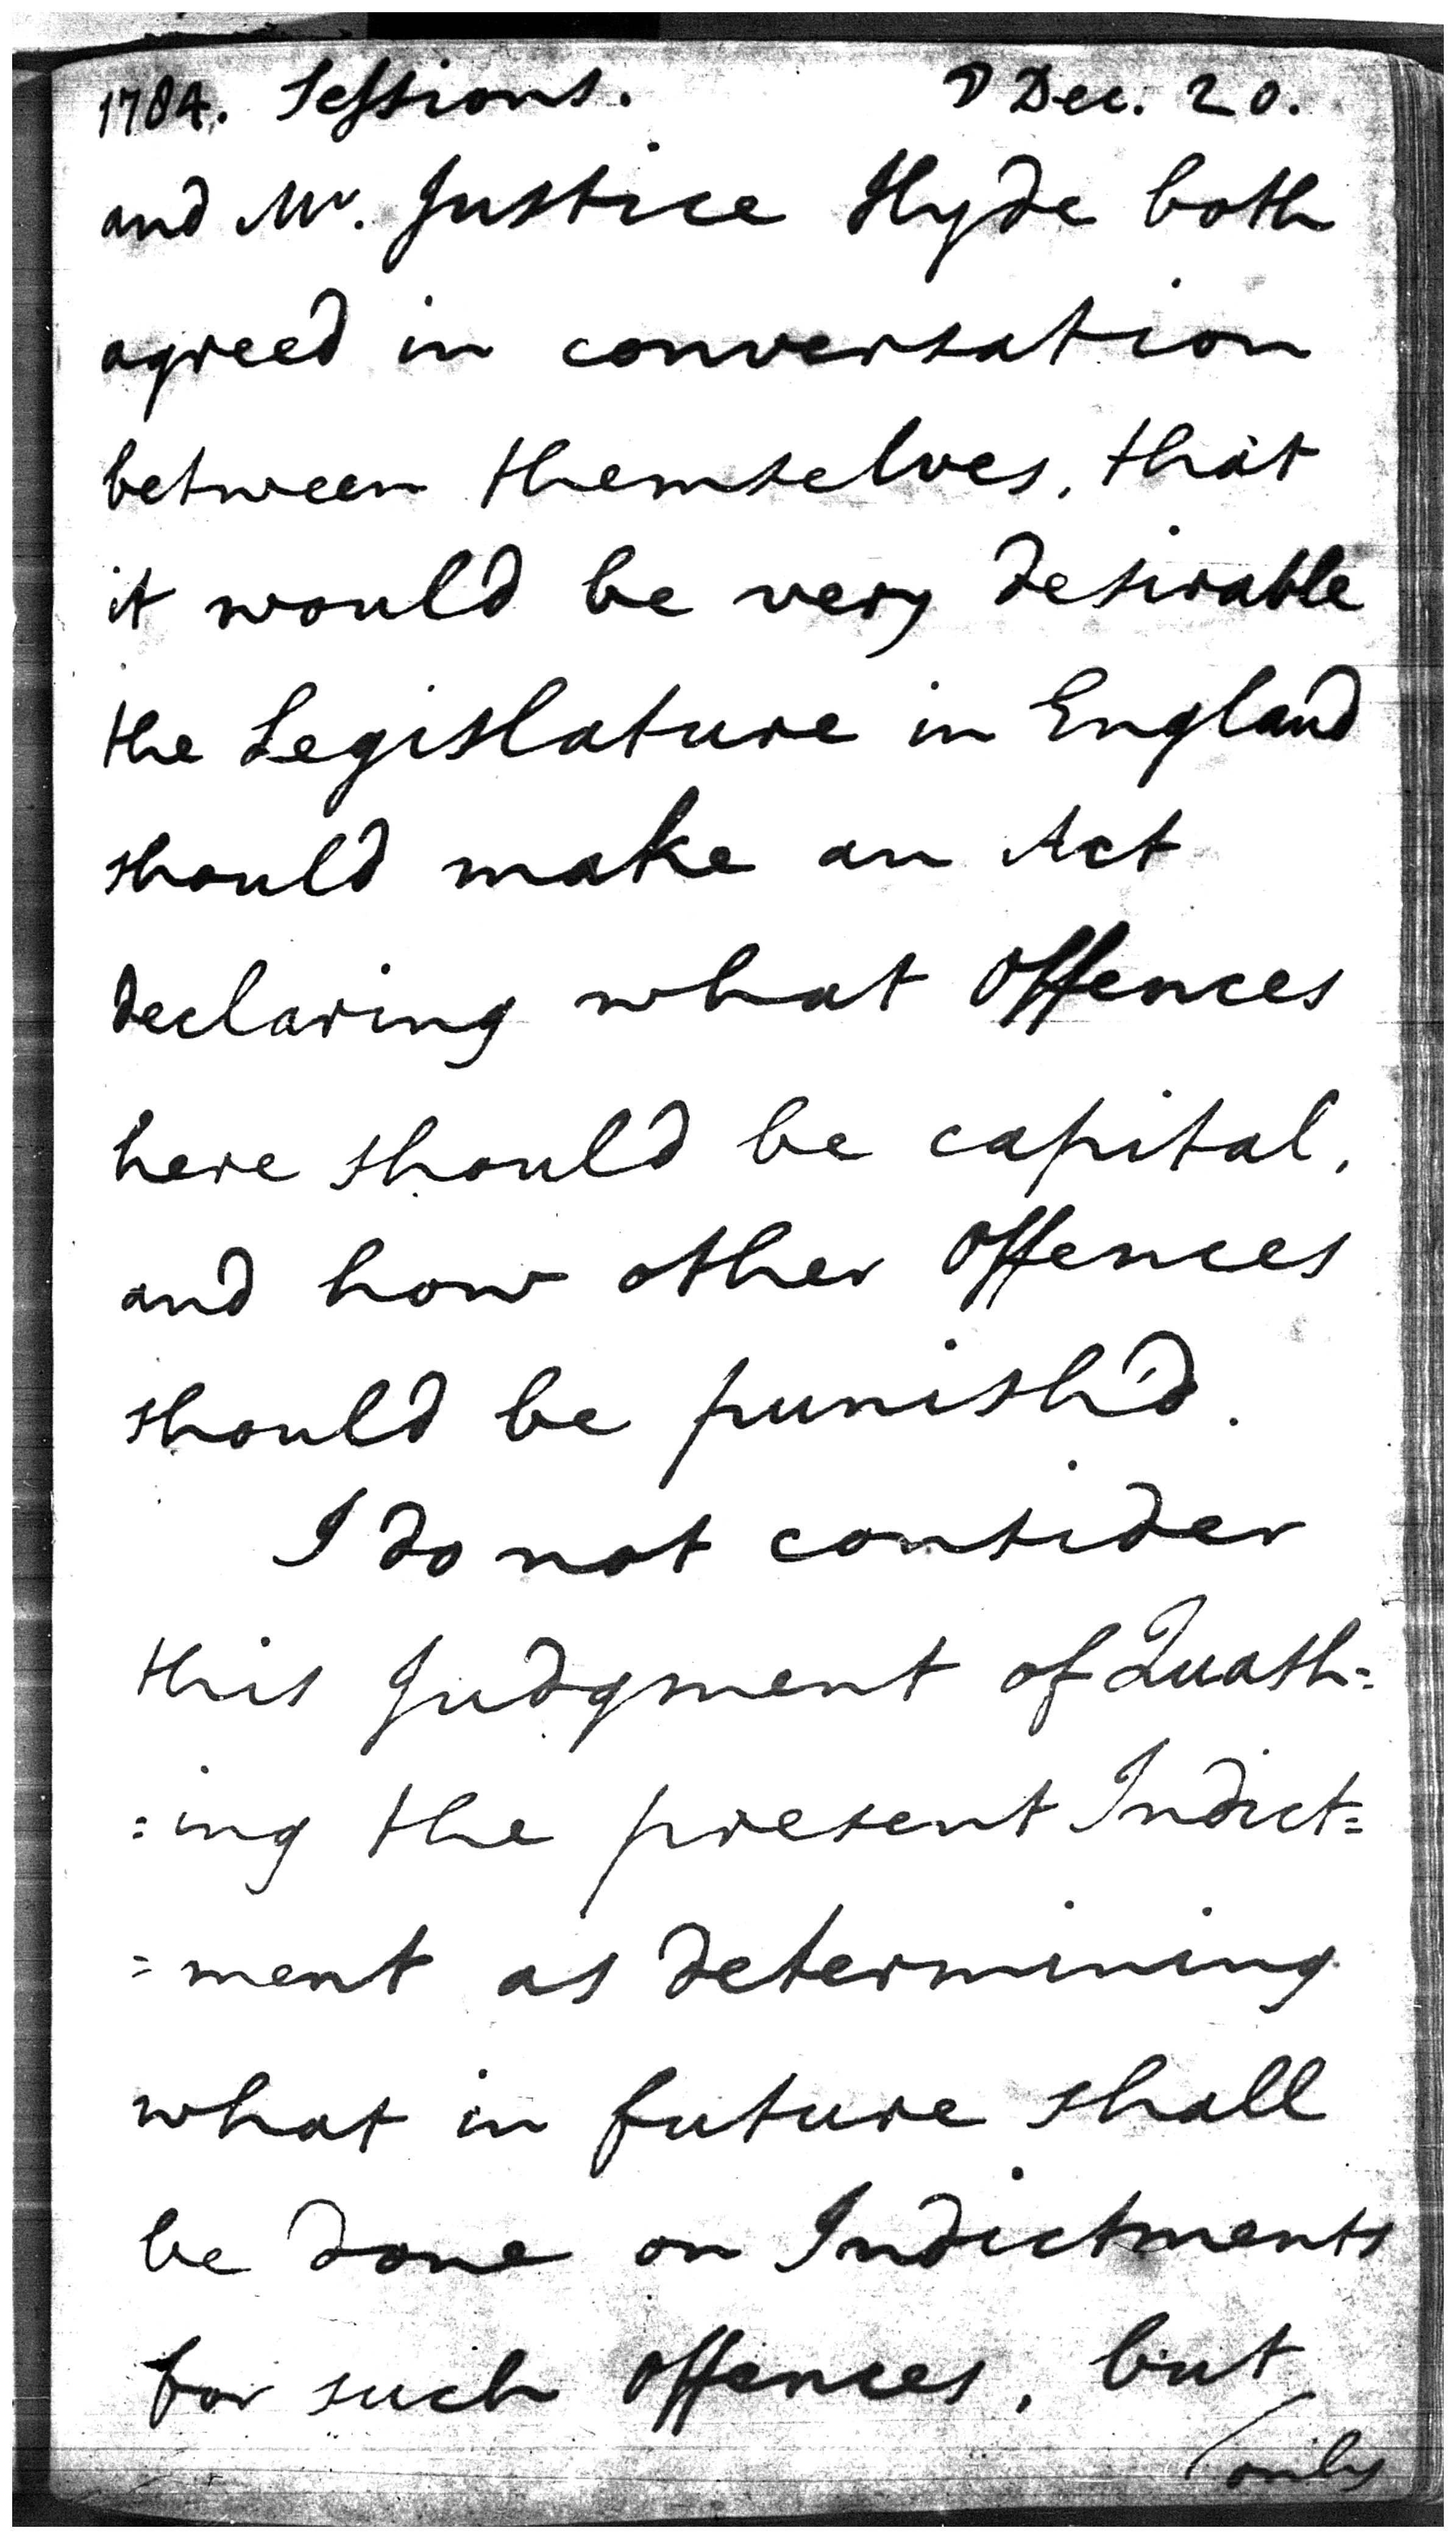 1784. Sessions. ☽ Dec. 20.
and Mr. Justice Hyde both
agreed in conversation
between themselves, that
it would be very desirable
the Legislature in England
should make an Act
declaring what Offences
here should be capital,
and how other Offences
should be punish'd.
I do not consider
this Judgment of Quash=
=ing the present Indict=
=ment as determining
what in future shall
be done on Indictments
for such Offences, but
only